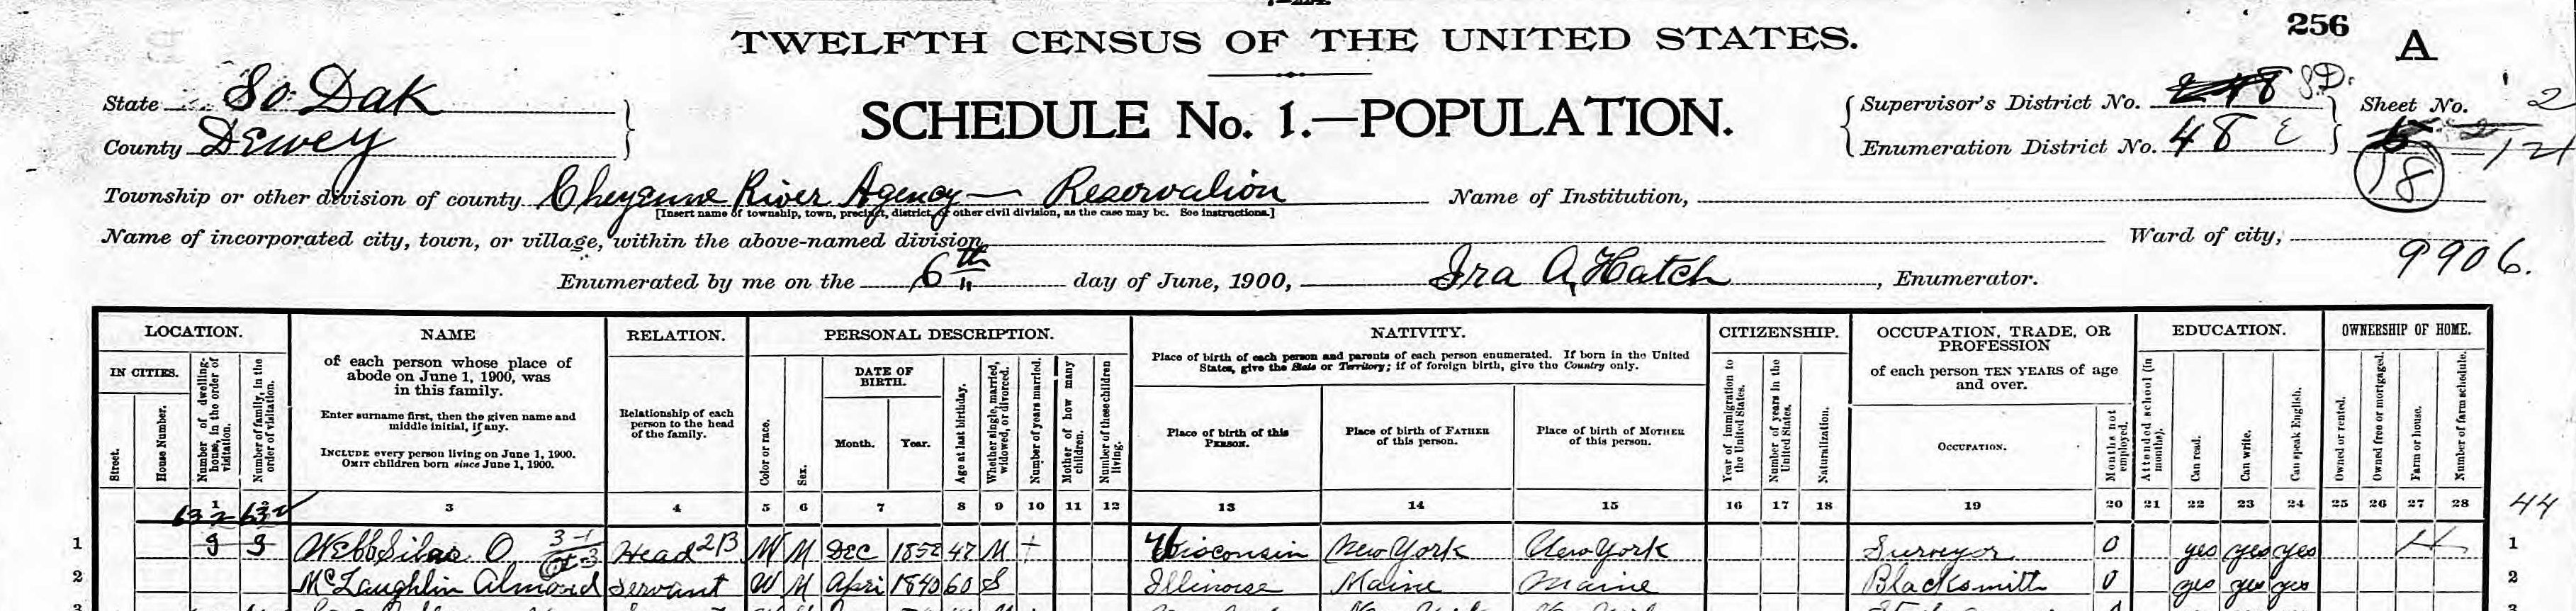 256
A
TWELFTH CENSUS OF THE UNITED STATES.
State So Dak
County Dewey
SCHEDULE No. 1.—POPULATION.
Supervisor's District No. 8 S.D.
Enumeration District No. 48 E
Sheet No. 2
8
Township or other division of county Cheyenne River Agency — Reservation
[Insert name of township, town, precinct, district, or other civil division, as the case may be. See instructions.]
Name of Institution,
Name of incorporated city, town, or village, within the above-named division,
Ward of city,
9906.
Enumerated by me on the 6th day of June, 1900, Ira A. Hatch, Enumerator.
LOCATION.
IN CITIES.
Street.
House Number.
Number of dwelling-house, in the order of visitation.
Number of family, in the order of visitation.
NAME
of each person whose place of
abode on June 1, 1900, was
in this family.
Enter surname first, then the given name and
middle initial, if any.
INCLUDE every person living on June 1, 1900.
OMIT children born since June 1, 1900.
RELATION.
Relationship of each
person to the head
of the family.
PERSONAL DESCRIPTION.
Color or race.
Sex.
DATE OF
BIRTH.
Month.
Year.
Age at last birthday.
Whether single, married, widowed, or divorced.
Number of years married.
Mother of how many children.
Number of these children living.
NATIVITY.
Place of birth of each person and parents of each person enumerated. If born in the United
States, give the State or Territory; if of foreign birth, give the Country only.
Place of birth of this
PERSON.
Place of birth of FATHER
of this person.
Place of birth of MOTHER
of this person.
CITIZENSHIP.
Year of immigration to the United States.
Number of years in the United States.
Naturalization.
OCCUPATION, TRADE, OR
PROFESSION
of each person TEN YEARS of age
and over.
OCCUPATION.
Months not employed.
EDUCATION.
Attended school (in months).
Can read.
Can write.
Can speak English.
OWNERSHIP OF HOME.
Owned or rented.
Owned free or mortgaged.
Farm or house.
Number of farm schedule.
1 2 3 4 5 6 7 8 9 10 11 12 13 14 15 16 17 18 19 20 21 22 23 24 25 26 27 28
44
1 9 9 Webb Silas O Head W M Dec 1852 47 M Wisconsin New York New York Surveyor 0 yes yes yes H 1
2 McLaughlin Almond Servant W M April 1840 60 S Illinoise Maine Maine Blacksmith 0 yes yes yes 2
3 3